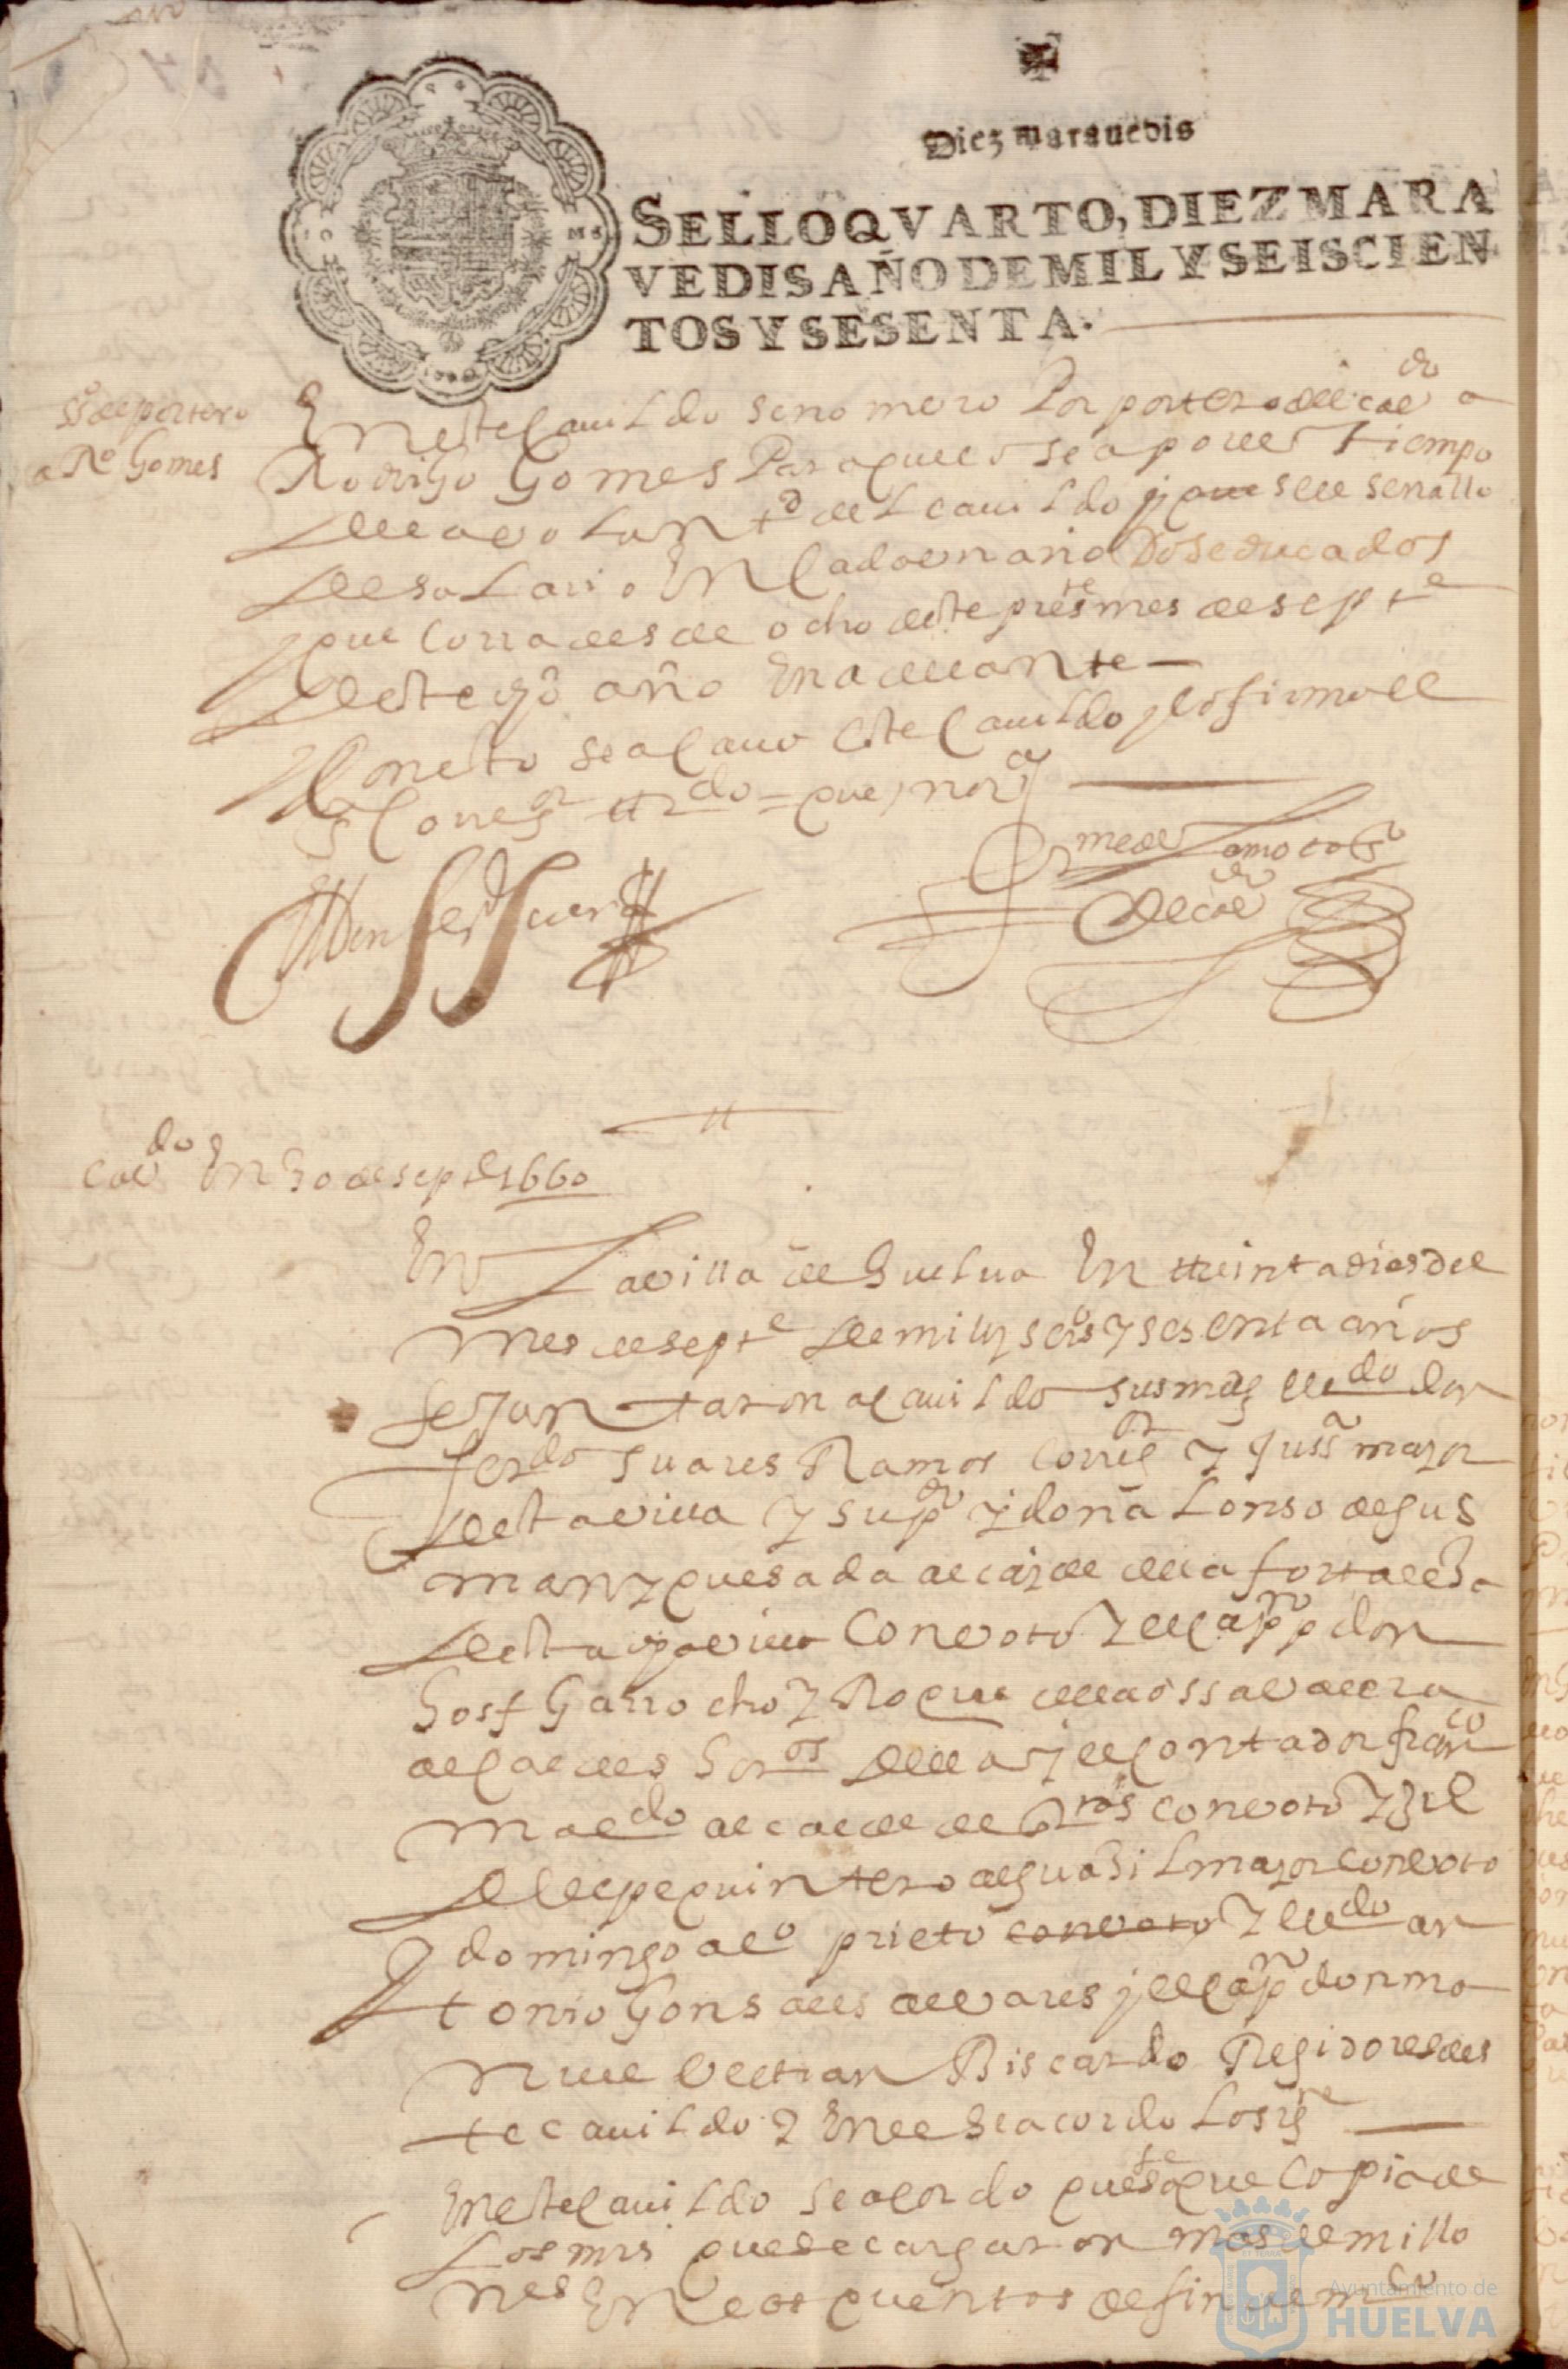 Diez marauedis
SELLO QVARTO, DIEZ MARA
VEDIS AÑO DE MIL Y SEISCIEN
TOS Y SESENTA.
So de portero
a Ro Gomes
En este cauildo se nomero Por portero del cavdo a
Rodrigo Gomes Para que lo sea por el tiempo
de la voluntd del cauildo y que se le senallo
de salario En cada un año Dose ducados
que corra desde ocho deste preste mes de septe
deste dho año En adelante
Con esto se acauo este cauildo y lo firmo el
Sr Corregr
cavdo En 30 de sepe de 1660
En La villa de Huelua En treinta dias del
mes de septe de mil y seiso y sesenta años
se Juntaron a cauildo sus mds el Licdo don
ferdo Suares Ramos Corregr y Jussa mayor
desta villa y su pdo y don alonso de gus
man y quesada alcayde de la fortalesa
desta dha villa Con voto y el capn don
Josf Garrocho y Roque de la ossa valdera
alcaldes hordos de ella y el contador franco
maldo alcalde de con voto y gil
de lepe quintero alguasil mayor con voto
domingo alo prieto con voto y el Licdo an
tonio Gonsales alvares y el capn don ma
nuel beltran Biscardo Regidores des
te cauildo y En el se acordo lo sige
En este cauildo se acordo que se saque copia de
los mrs que se cargaron mas de millo
nes En los quentos de fin de
Ayuntamiento de
HUELVA